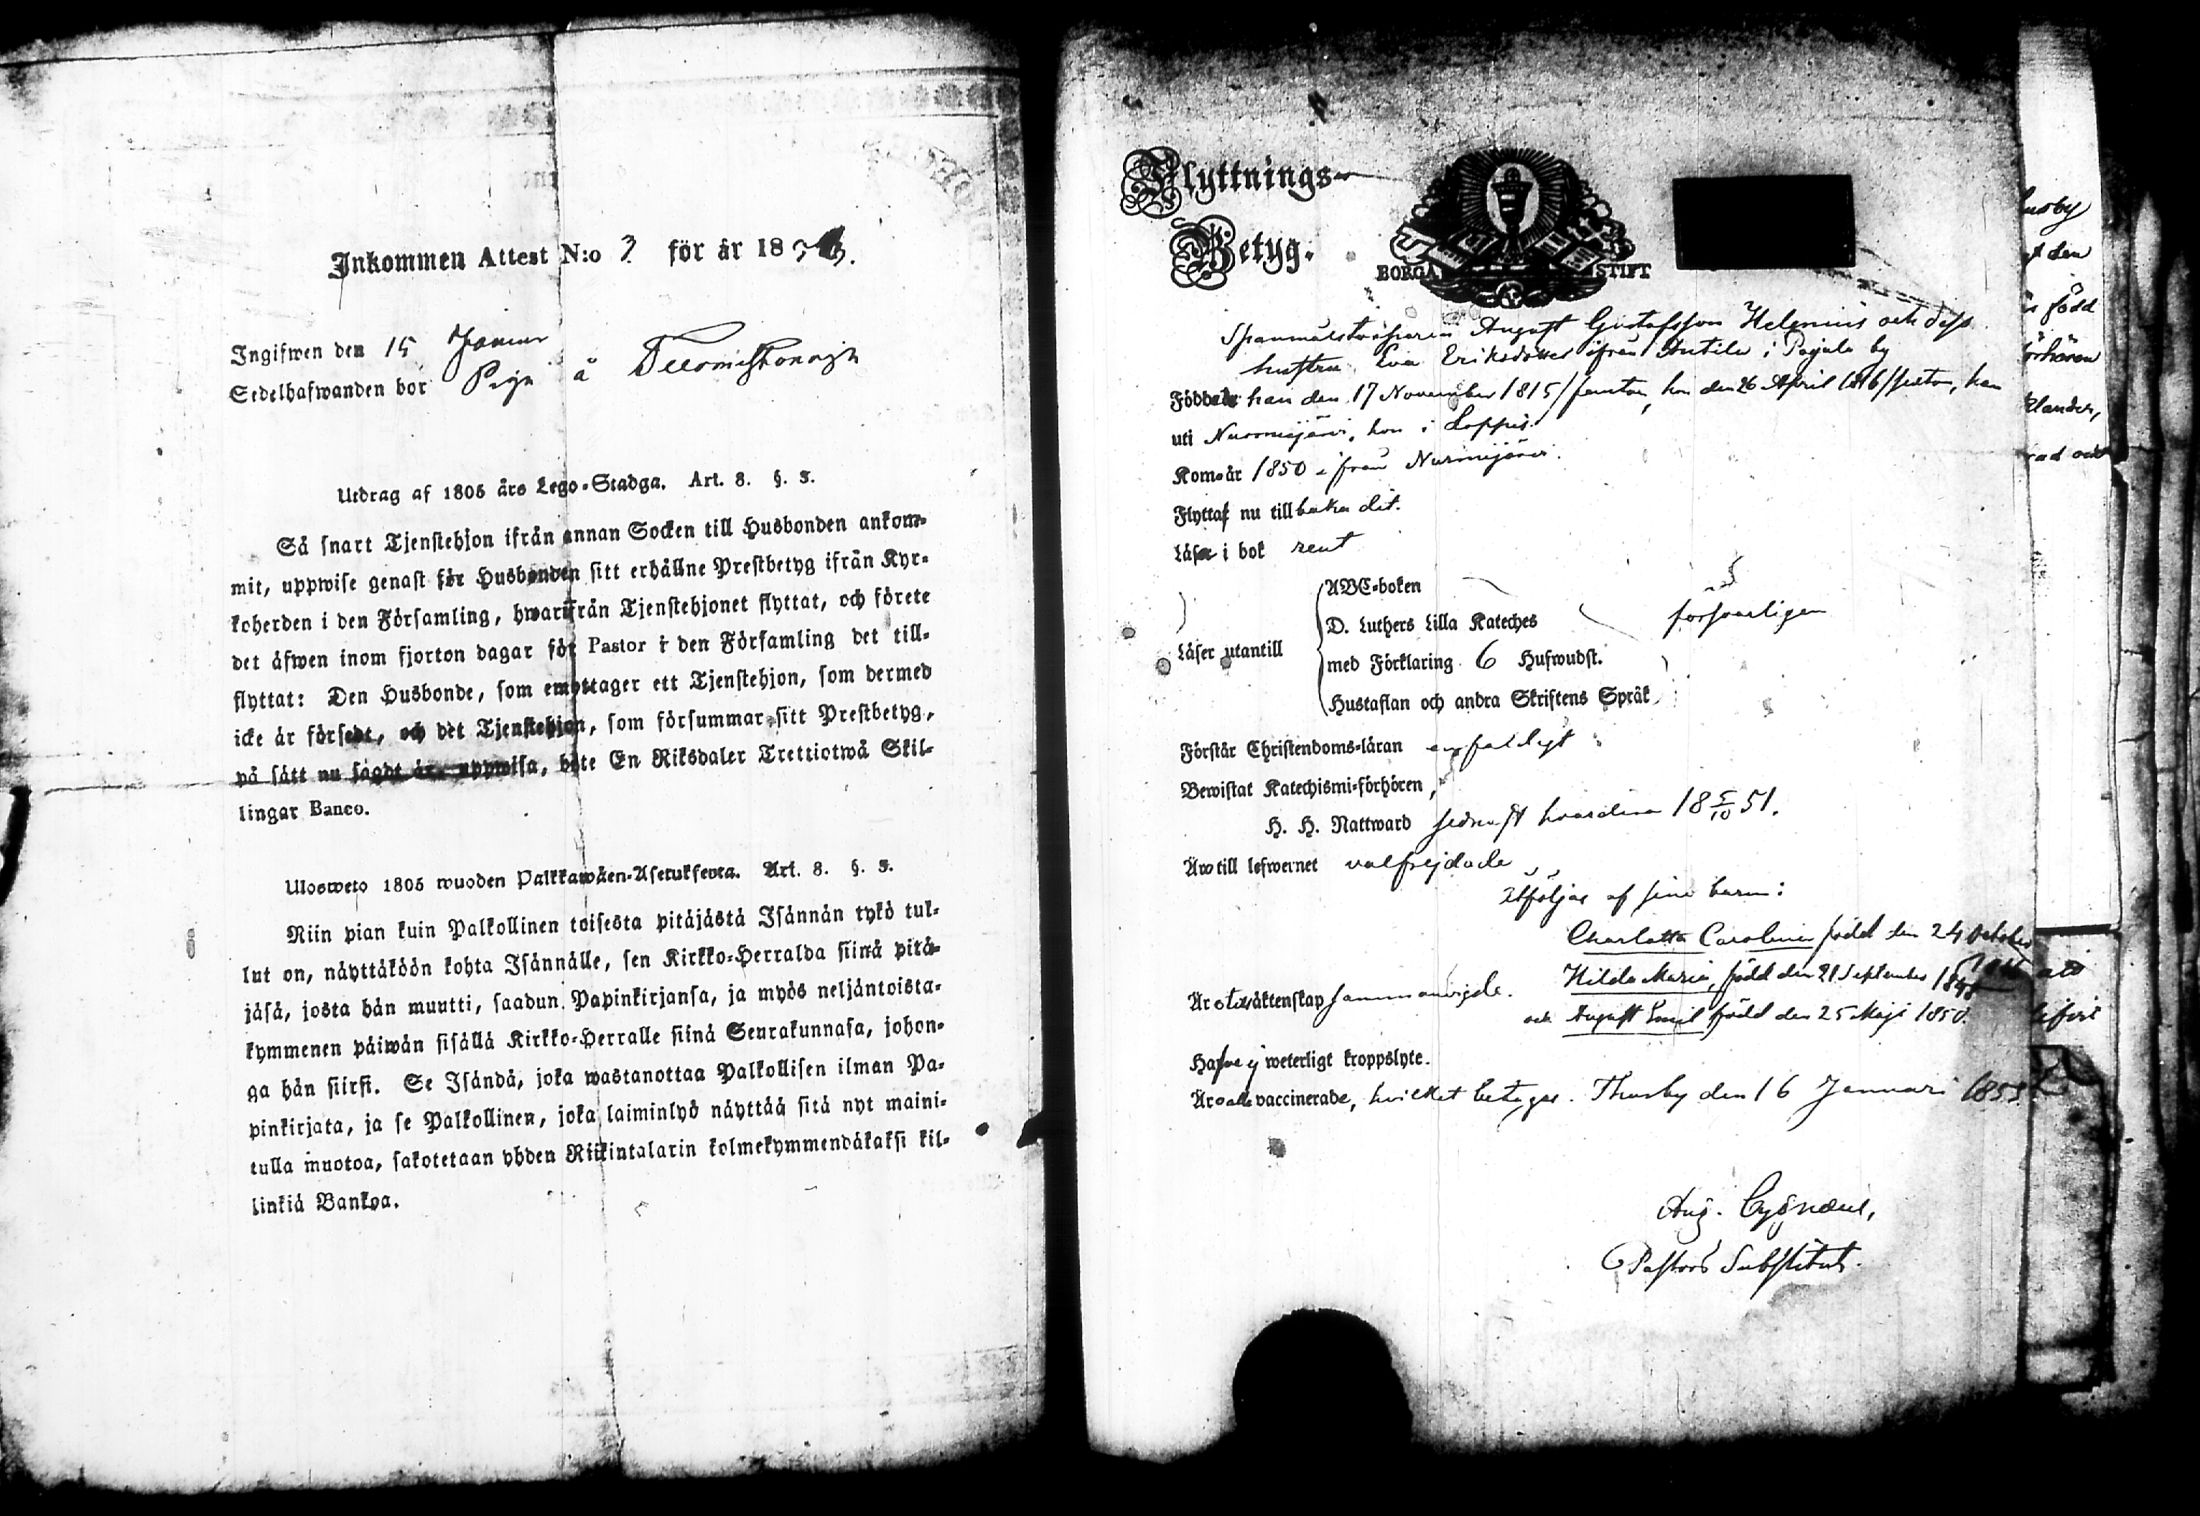 Inkommen Attest N:o 3 för år 1853.
Ingifwen den 15 Januar
Sedelhafwanden bor Piga å
Utdrag af 1805 års Lego-Stadga. Art. 8. §. 3.
Så snart Tjenstehjon ifrån annan Socken till Husbonden ankom-
mit, uppwise genast för Husbonden sitt erhållne Prestbetyg ifrån Kyr-
koherden i den Församling, hwarifrån Tjenstehjonet flyttat, och förete
det äfwen inom fjorton dagar för Pastor i den Församling det till-
flyttat: Den Husbonde, som emottager ett Tjenstehjon, som dermed
icke är försedt, och det Tjenstehjon, som försummar sitt Prestbetyg,
på sätt nu sagdt är, uppwisa, böte En Riksdaler Trettiotwå Skil-
lingar Banco.
Ulosweto 1805 wuoden Palkkawäen-Asetuksesta. Art. 8. §. 3.
Niin pian kuin Palkollinen toisesta pitäjästä Isännän tykö tul-
lut on, näyttäköön kohta Isännälle, sen Kirkko-Herralda siinä pitä-
jäsä, josta hän muutti, saadun Papinkirjansa, ja myös neljäntoista-
kymmenen päiwän sisällä Kirkko-Herralle siinä Seurakunnasa, johon-
ga hän siirsi. Se Isändä, joka wastanottaa Palkollisen ilman Pa-
pinkirjata, ja se Palkollinen, joka laiminlyö näyttää sitä nyt maini-
tulla muotoa, sakotetaan yhden Riikintalarin kolmekymmendäkaksi kil-
linkiä Bankoa.
Flyttnings-
Betyg.
BORGÅ STIFT
August Gustafsson Helenius och dess
hustru Eva Eriksdotter ifrån Anttila i Pojula by
Födde han den 17 November 1815/femton, hon den 26 April 1816/sexton, han
uti Nurmijärvi, hon i Loppis.
Kom år 1850 ifrån Nurmijärvi.
Flytta nu tillbaka dit.
Läsa i bok rent
Läser utantill
ABC-boken
D. Luthers Lilla Kateches
med Förklaring 6 Hufwudst.
Hustaflan och andra Skriftens Språk
försvarligen
Förstår Christendoms-läran enfaldigt
Bewistat Katechismi-förhören,
H. H. Nattward sednast hvardera 18 5/10 51.
Äro till lefwernet välfrejdade
Åtföljas af sina barn:
Charlotta Carolina född den 24 October
Hilda Maria, född den 21 September 1848
och August Emil född den 25 Maji 1850.
Äro till äktenskap sammanvigde.
Hafva ej weterligt kroppslyte.
Äro alla vaccinerade, hvilket betygas. Thusby den 16 Januari 1853.
Aug. Cygnæus,
Pastors Substitut.